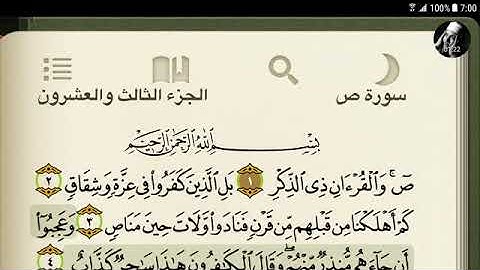 100% 7:00
01:22
سورة ص الجزء الثالث والعشرون
بِسْمِ اللَّهِ الرَّحْمَٰنِ الرَّحِيمِ
صٓ ۚ وَالْقُرْءَانِ ذِى الذِّكْرِ ١ بَلِ الَّذِينَ كَفَرُوا۟ فِى عِزَّةٍ وَشِقَاقٍ ٢
كَمْ أَهْلَكْنَا مِن قَبْلِهِم مِّن قَرْنٍ فَنَادَوا۟ وَّلَاتَ حِينَ مَنَاصٍ ٣ وَعَجِبُوٓا۟
أَن جَآءَهُم مُّنذِرٌ مِّنْهُمْ ۖ وَقَالَ الْكَٰفِرُونَ هَٰذَا سَٰحِرٌ كَذَّابٌ ٤